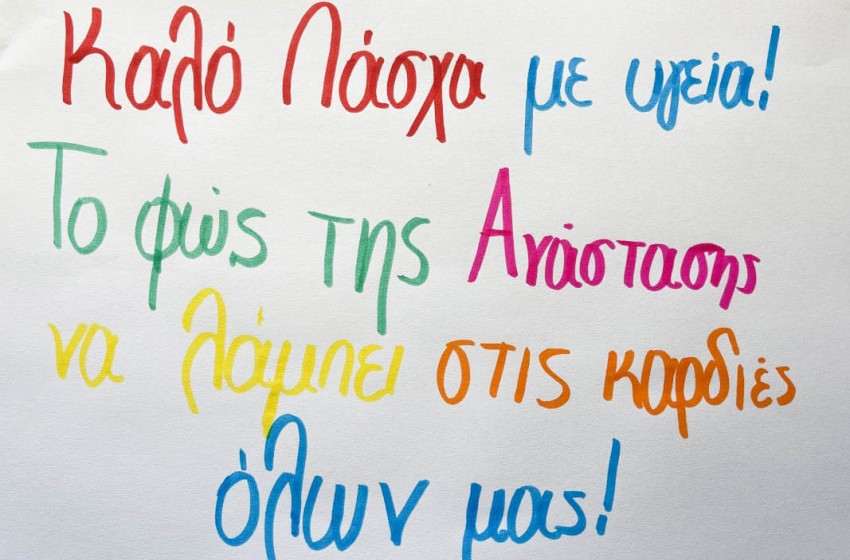 Καλό Πάσχα με υγεία!
Το φώς της Ανάστασης
να λάμπει στις καρδιές
όλων μας!